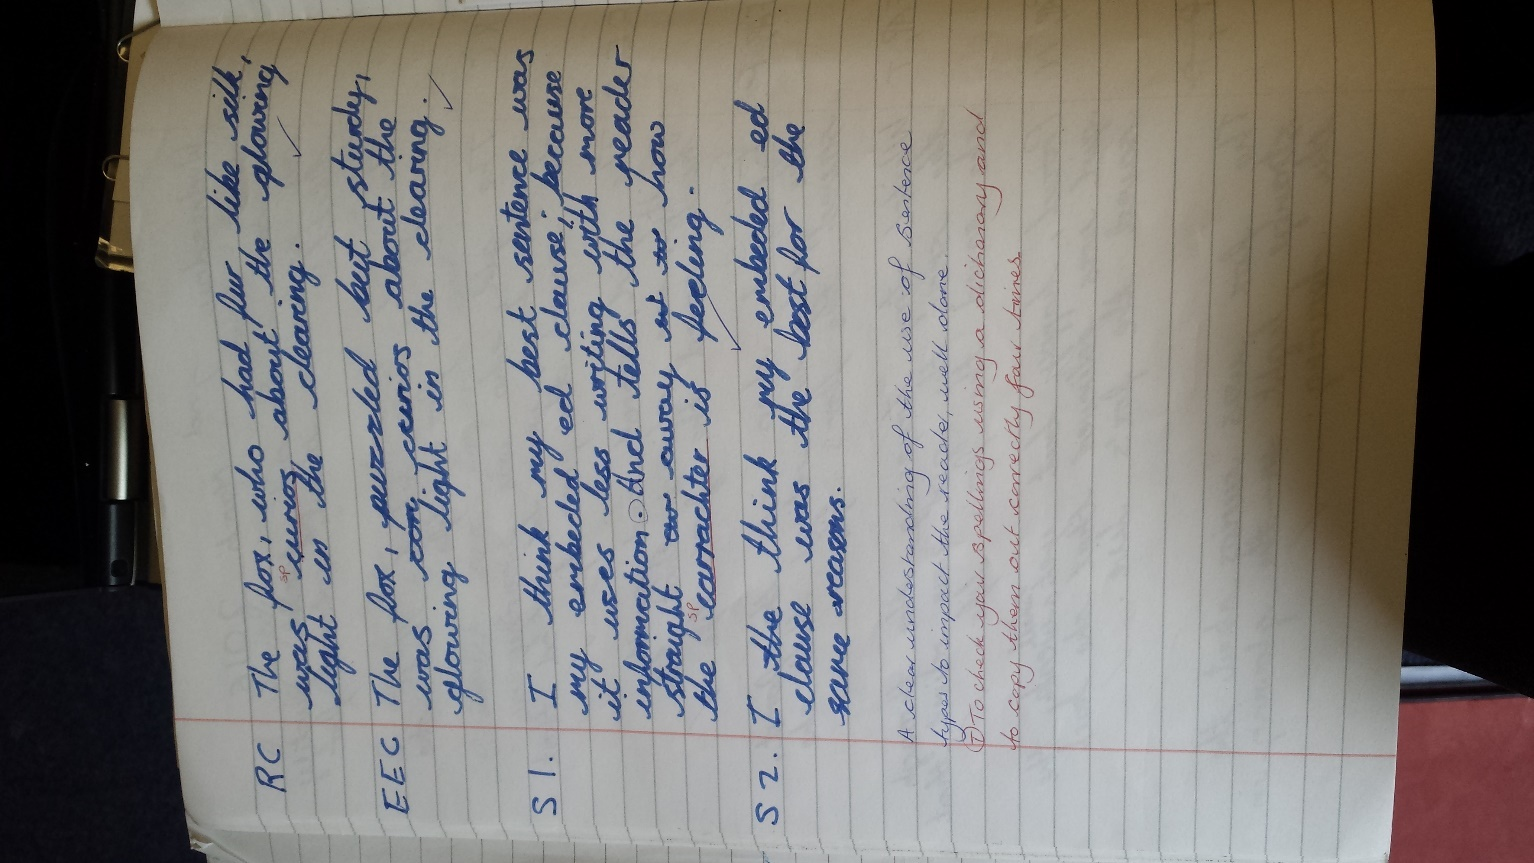 RC The fox, who had fur like silk,
was curios about the glowing
sp
light in the clearing.
EEC The fox, puzzled but sturdy,
was curios about the
glowing light in the clearing.
S1. I think my best sentence was
my embeded ed clause; because
it uses less writing with more
information. And tells the reader
straight away how
sp
the carrachter is feeling.
S2. I the think my embeded ed
clause was the best for the
same reasons.
A clear understanding of the use of sentence
types to impact the reader, well done.
T To check your spellings using a dictionary and
to copy them out correctly four times.